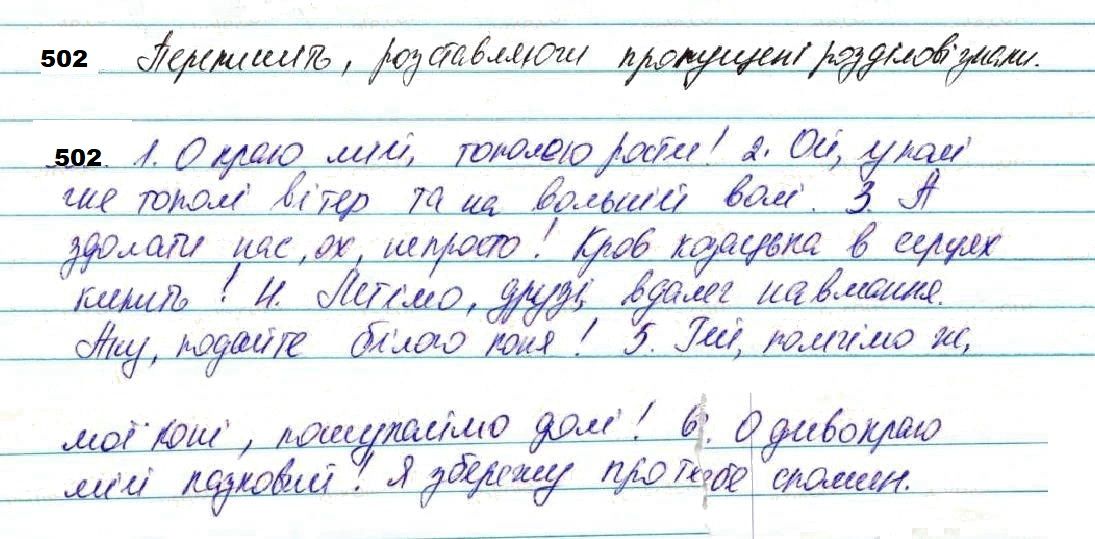 502 Перепишіть, розставляючи пропущені розділові знаки.
502. 1. О краю мій, тополею рости! 2. Ой, у полі
гне тополі вітер та на вольній волі. 3. А
здолати нас, ох, непросто! Кров козацька в серцях
кипить! 4. Летімо, друзі, вдалеч навмання.
Ану, подайте білого коня! 5. Гей, помчімо ж,
мої коні, пошукаймо долі! 6. О дивокраю
мій казковий! Я збережу про тебе спомин.